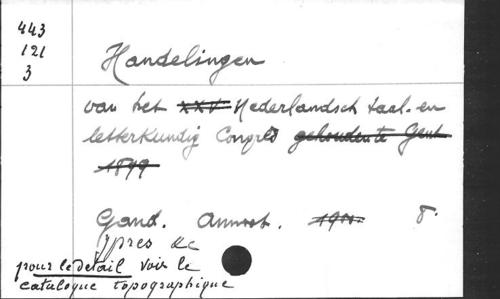 443
121
3
Handelingen
van het XXV Nederlandsch taal- en
letterkundig Congres gehouden te Gent
1899
Gand. Annoot. 1900. 8.
Ypres &c
pour le detail voir le
catalogue topographique